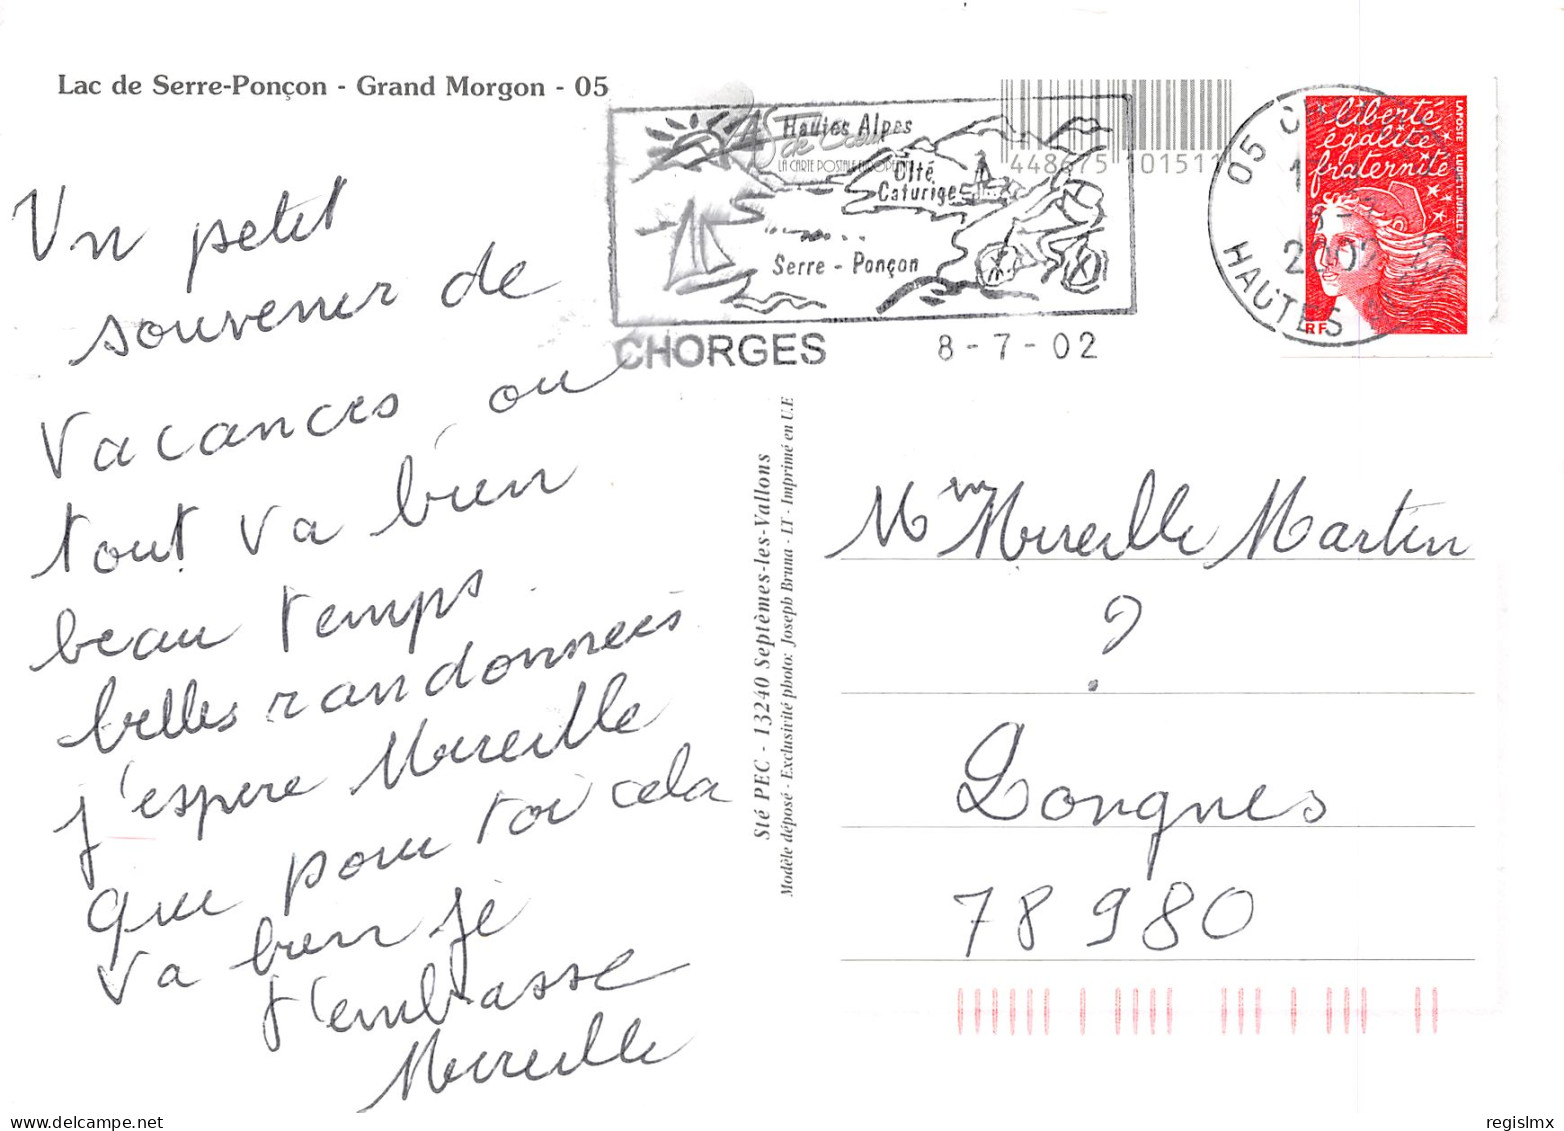 Lac de Serre-Ponçon - Grand Morgon - 05
Hautes Alpes
LA CARTE POSTALE EUROPÉENNE
Cité
Caturige
Serre - Ponçon
CHORGES 8-7-02
448675 101511
05
HAUTES
2002
liberté
égalité
fraternité
LA POSTE
RF
Un petit
souvenir de
vacances ou
tout va bien
beau temps.
belles randonnées
j'espere Mireille
que pour toi cela
va bien je
t'embrasse
Mireille
Sté PEC - 13240 Septèmes-les-Vallons
Modèle déposé - Exclusivité photo: Joseph Bruna - LT - Imprimé en U.E
Mme Mireille Martin
?
Longnes
78980
regislmx
delcampe.net